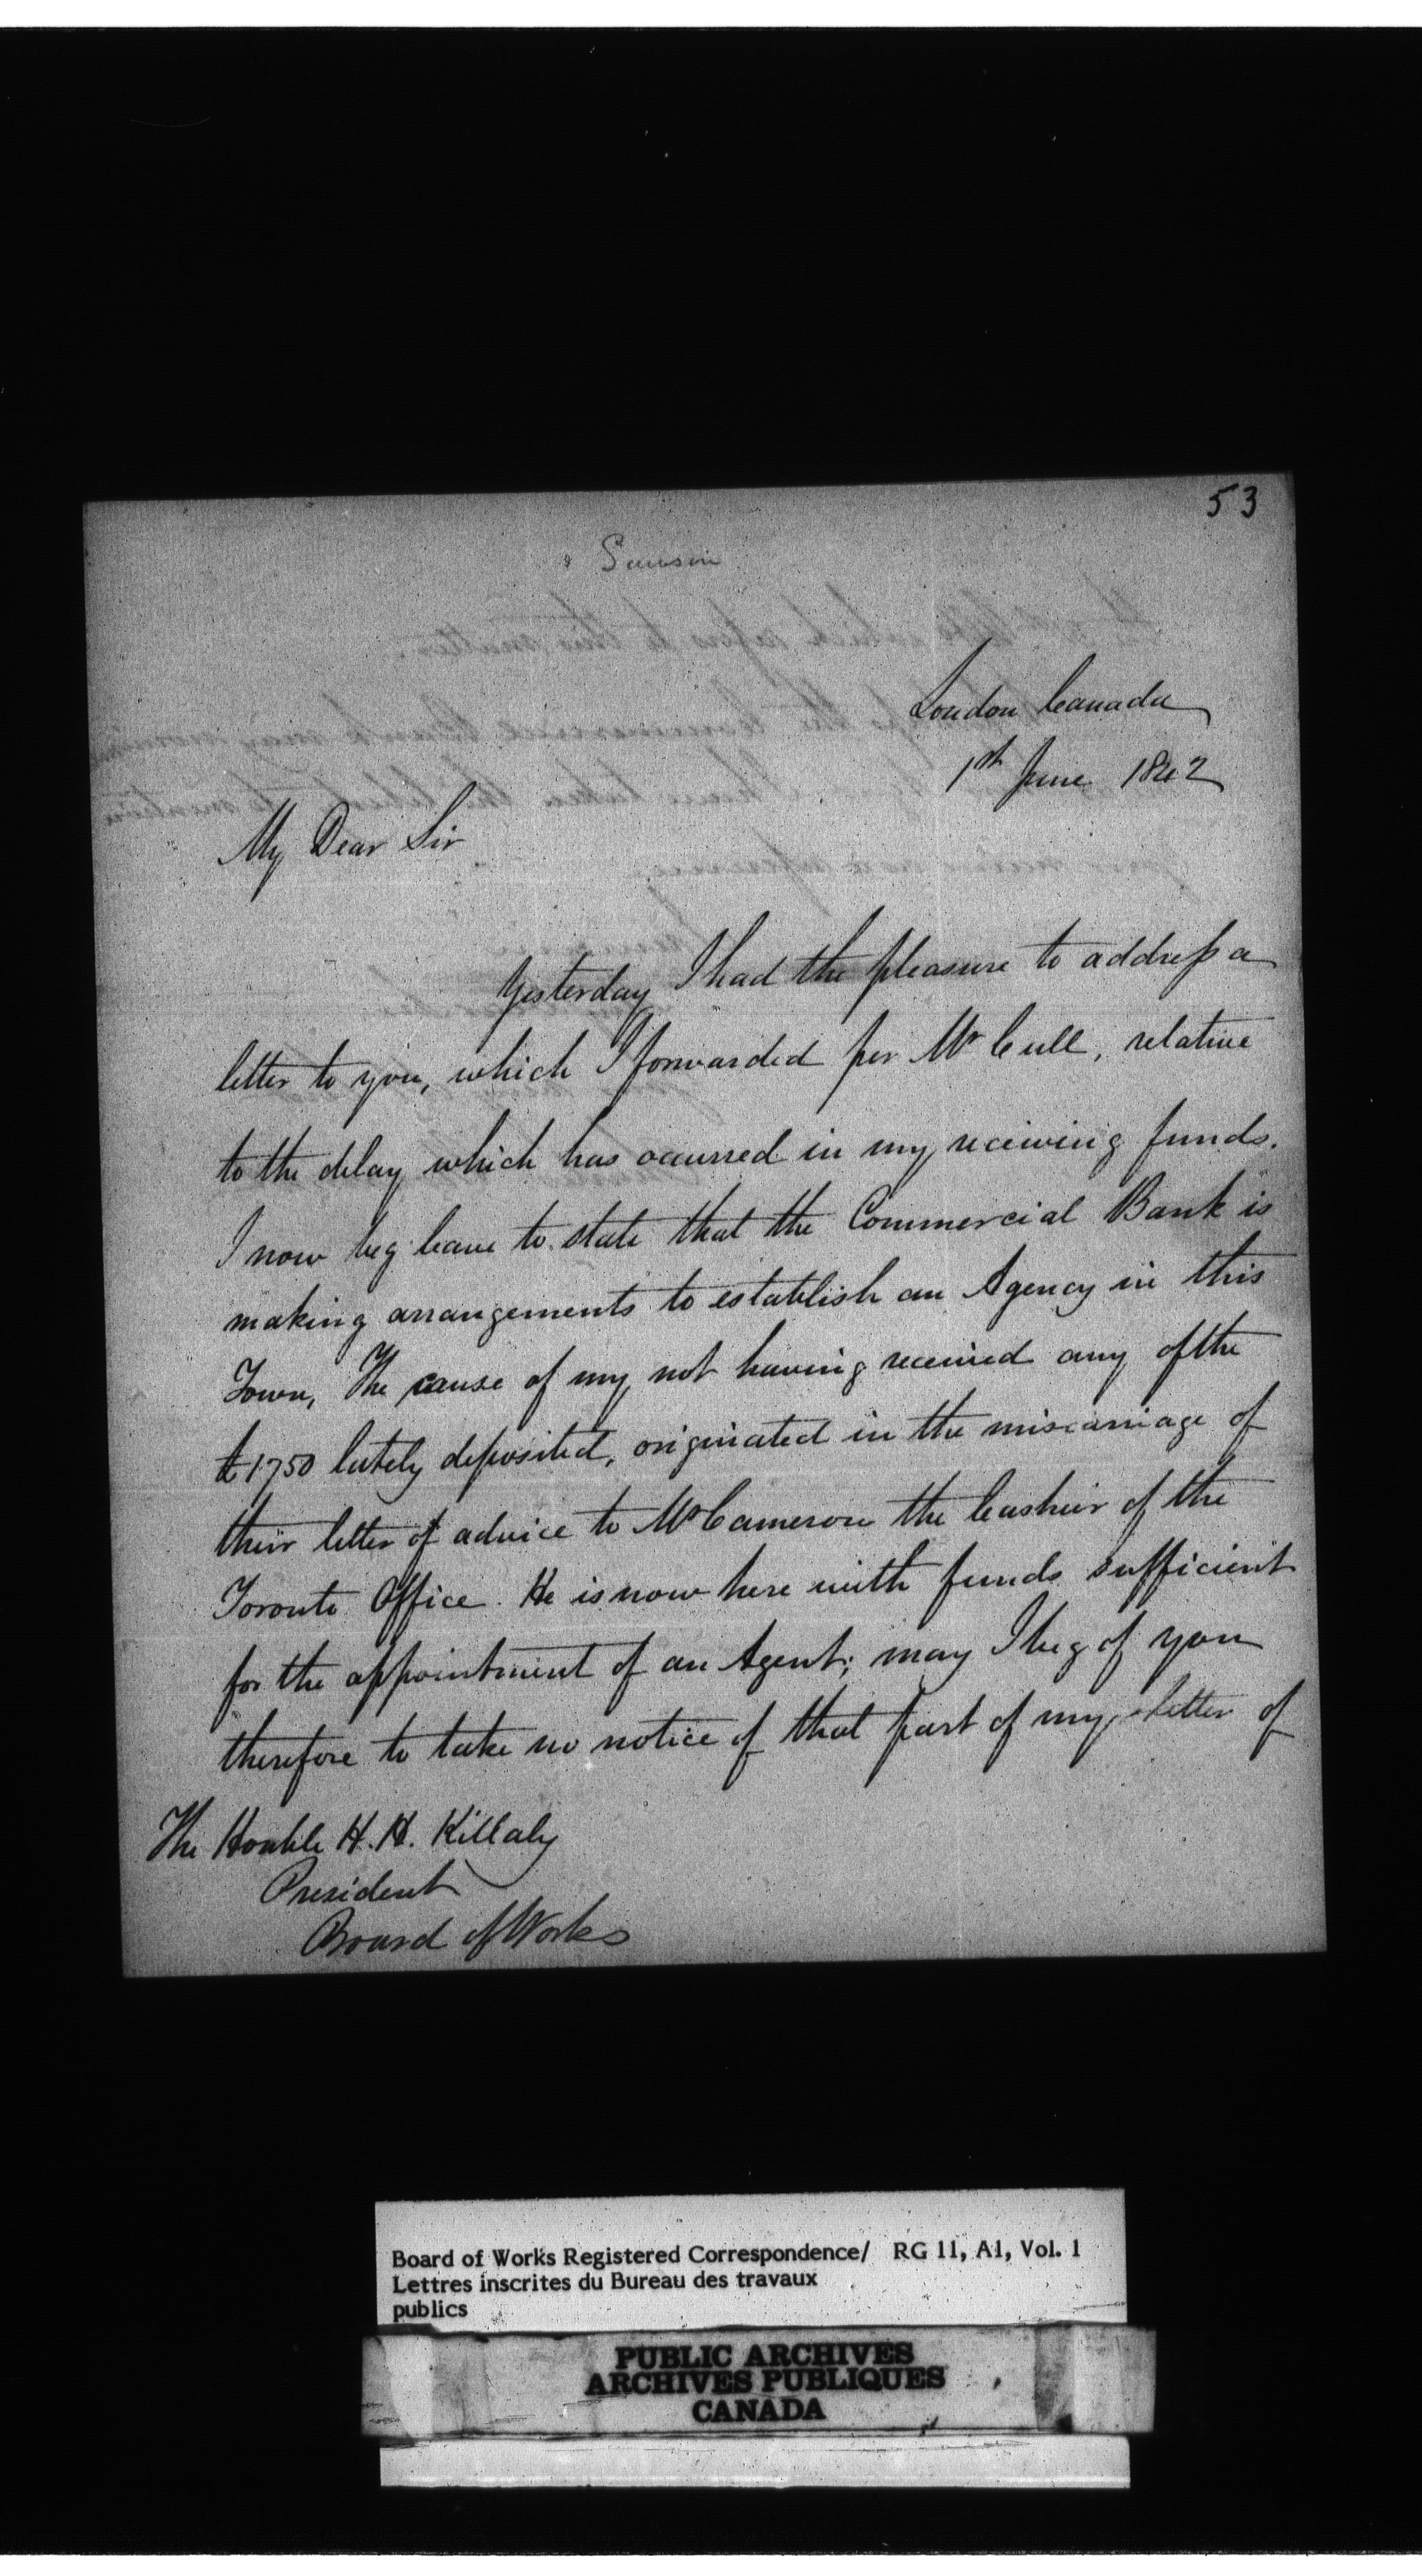 53
London Canada
1st June 1842
My Dear Sir
Yesterday I had the pleasure to address a
letter to you, which I forwarded per Mr Cull, relative
to the delay which has ocurred in my receiving funds.
I now beg leave to state that the Commercial Bank is
making arrangements to establish an Agency in this
Town, The cause of my not having received any of the
£1750 lately deposited, originated in the miscarriage of
their letter of advice to Mr Cameron the Cashier of the
Toronto Office. He is now here with funds sufficient
for the appointment of an Agent; may I beg of you
therefore to take no notice of that part of my letter of
The Honble H. H. Killaly
President
Board of Works
Board of Works Registered Correspondence/ RG 11, A1, Vol. 1
Lettres inscrites du Bureau des travaux
publics
PUBLIC ARCHIVES
ARCHIVES PUBLIQUES
CANADA